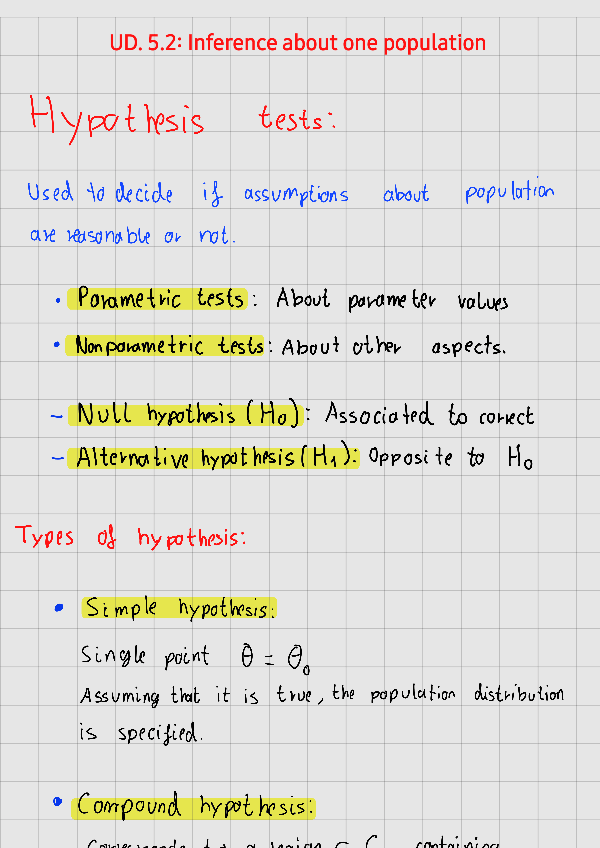 UD. 5.2: Inference about one population
Hypothesis tests:
Used to decide if assumptions about population
are reasonable or not.
• Parametric tests: About parameter values
• Nonparametric tests: About other aspects.
- Null hypothesis (H₀): Associated to correct
- Alternative hypothesis (H₁): Opposite to H₀
Types of hypothesis:
• Simple hypothesis:
Single point θ = θ₀
Assuming that it is true, the population distribution
is specified.
• Compound hypothesis:
containing